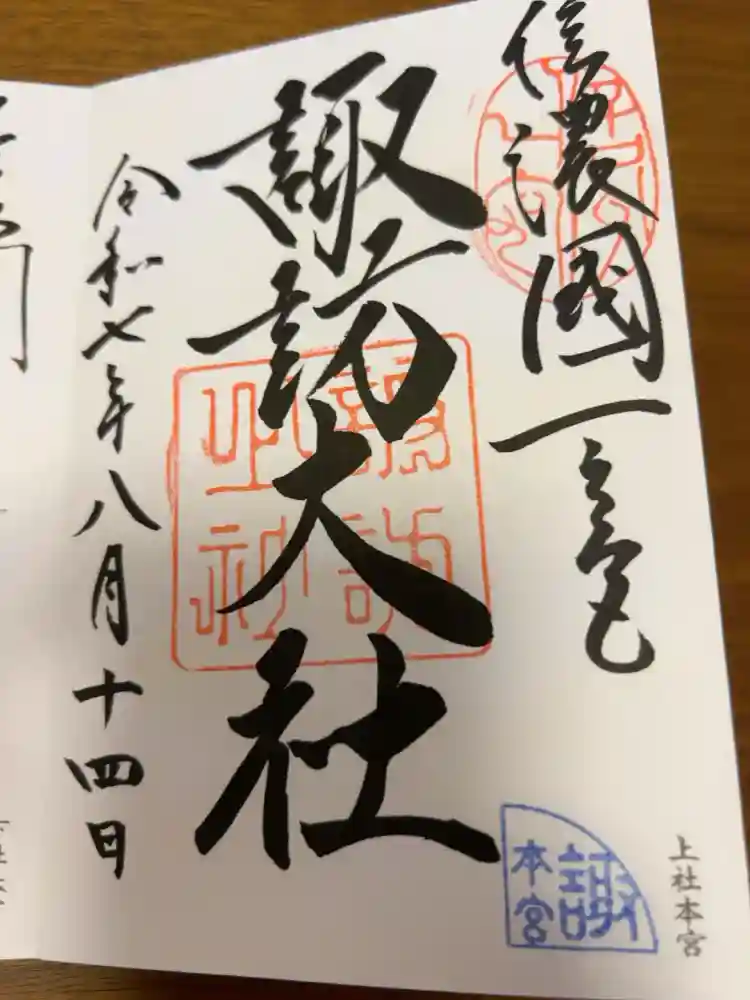 信濃國一之宮
諏訪大社
諏訪
神
本宮
諏
上社本宮
令和七年八月十四日